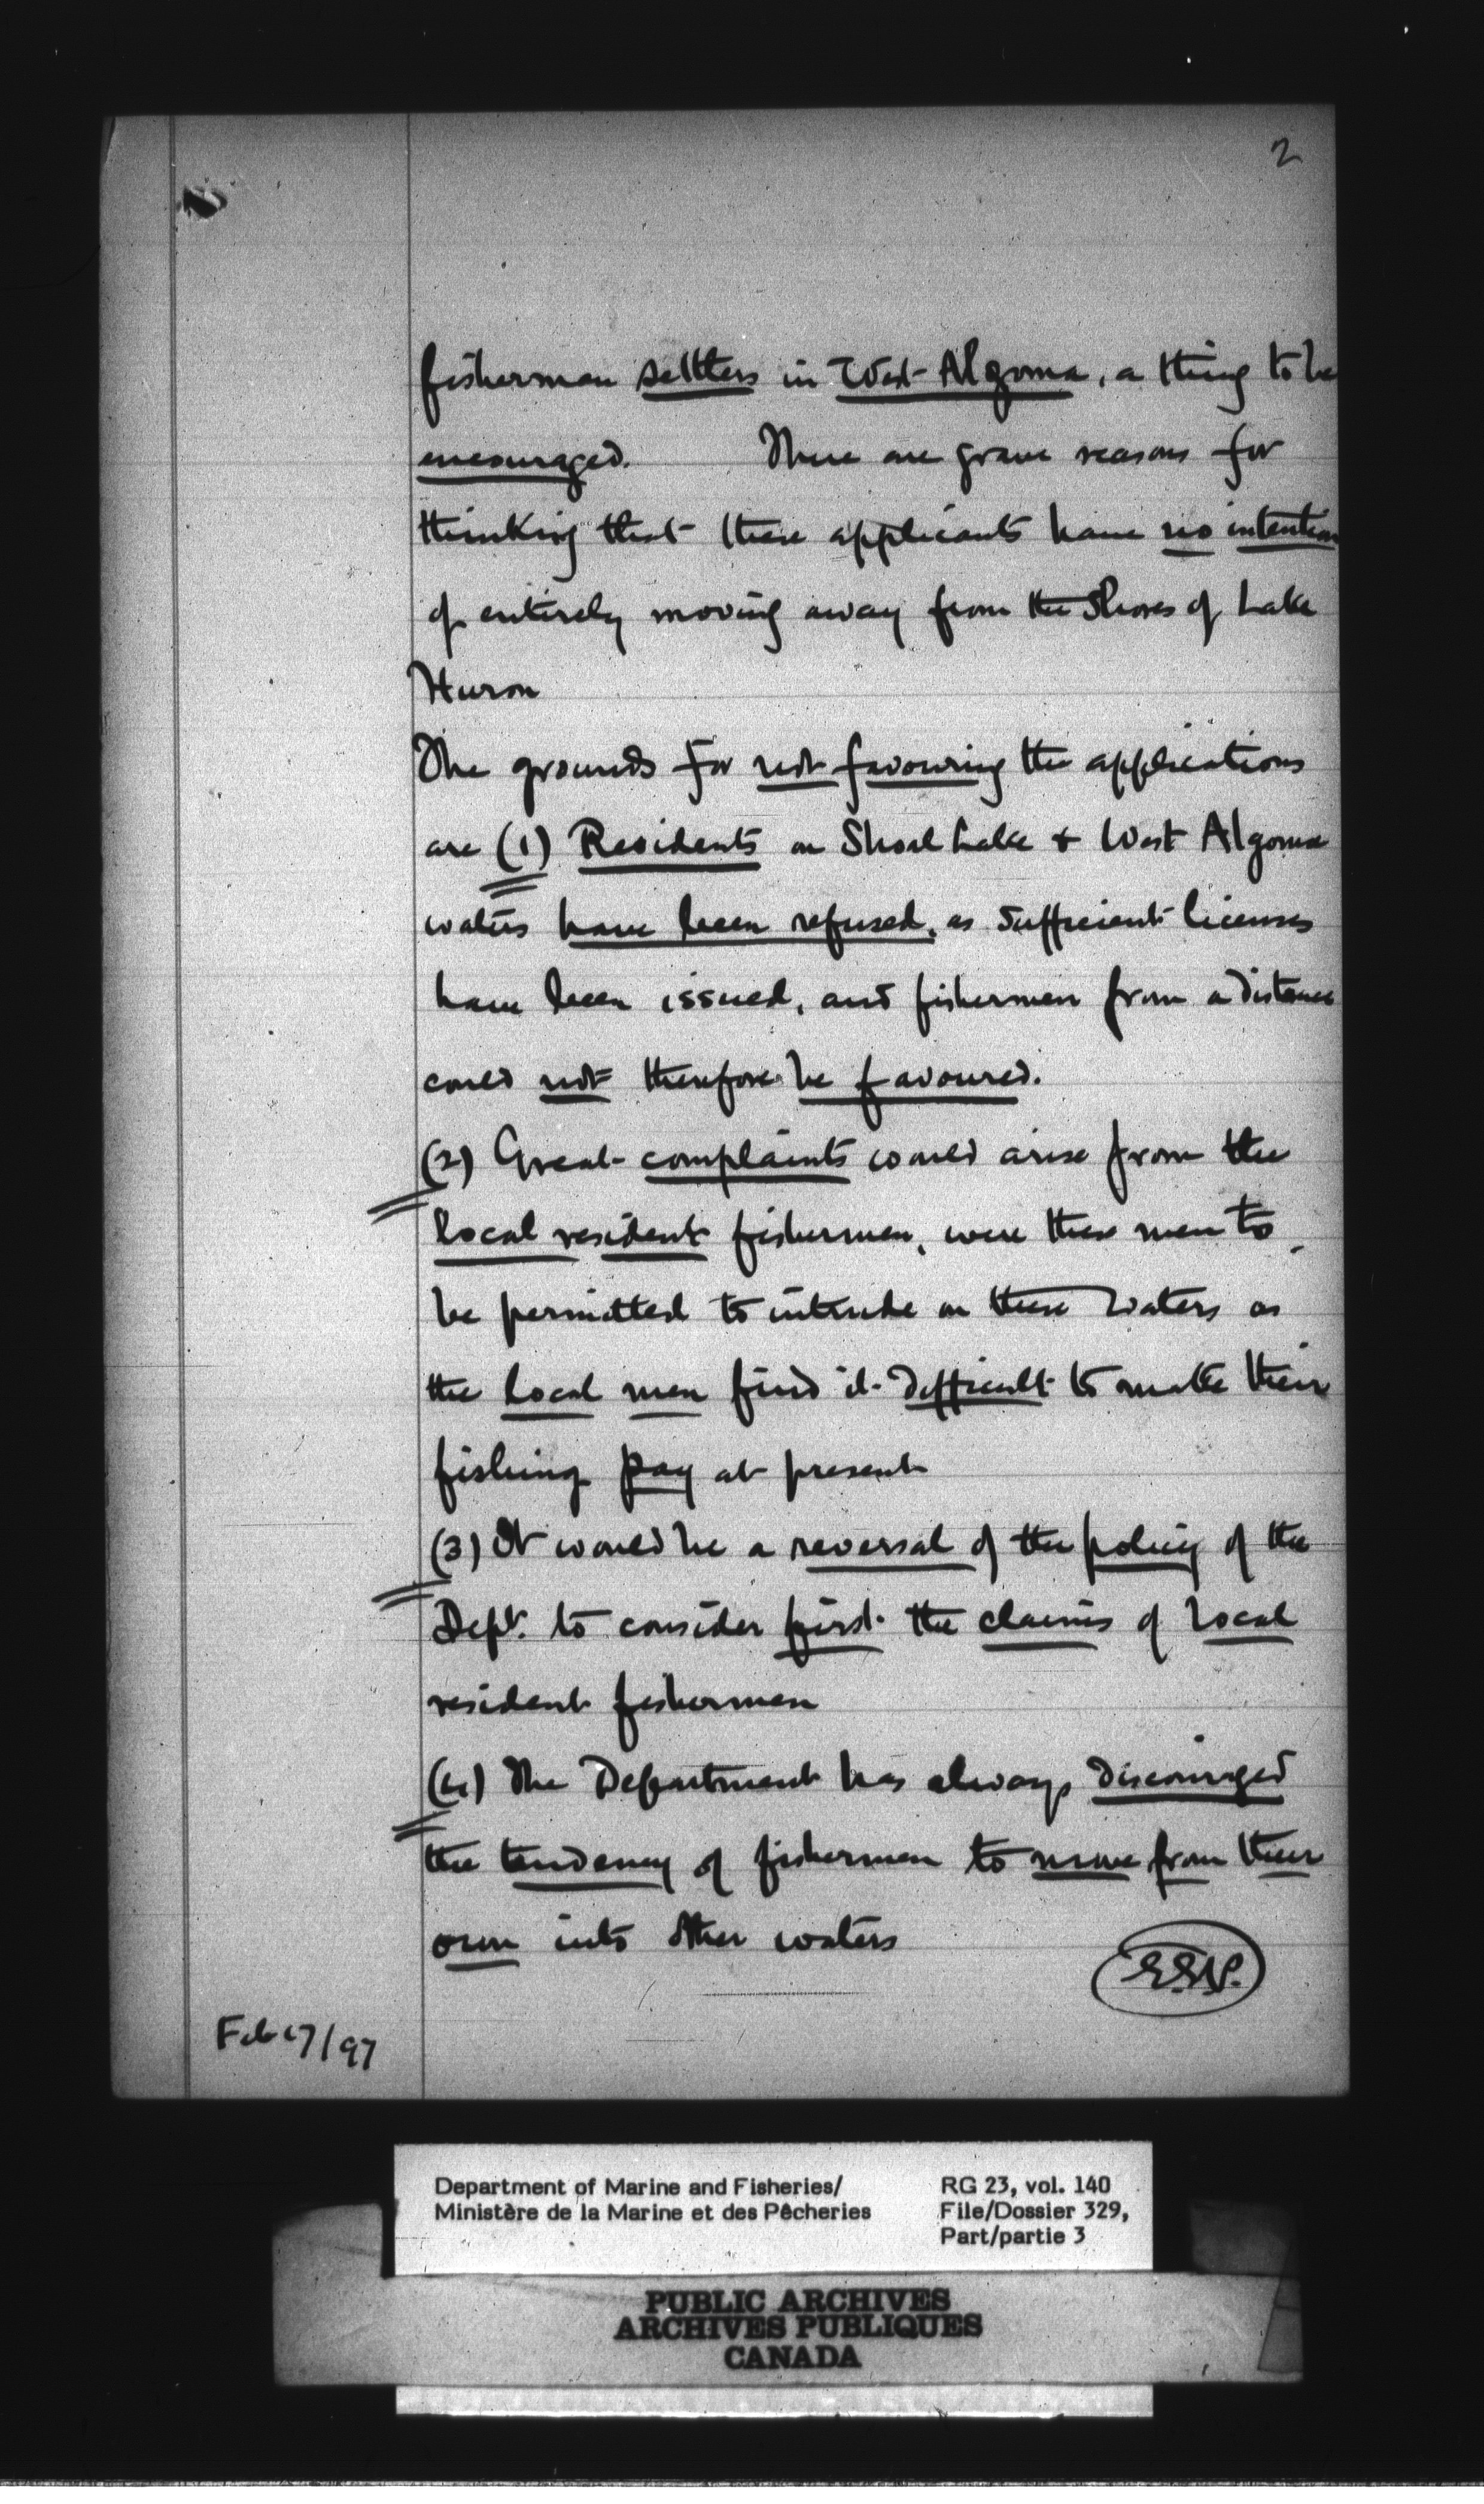 2
fisherman settlers in West Algoma, a thing to be
encouraged. There are grave reasons for
thinking that these applicants have no intention
of entirely moving away from the Shores of Lake
Huron
The grounds for not favouring the applications
are (1) Residents on Shoal Lake + West Algoma
waters have been refused, as sufficient licenses
have been issued, and fishermen from a distance
could not therefore be favoured.
(2) Great complaints would arise from the
local resident fishermen, were these men to
be permitted to intrude on these waters as
the local men find it difficult to make their
fishing pay at present
(3) It would be a reversal of the policy of the
Dept. to consider first the claims of local
resident fishermen
(4) The Department has always discouraged
the tendency of fishermen to move from their
own into other waters
E.E.P.
Feb 17/97
Department of Marine and Fisheries/
Ministère de la Marine et des Pêcheries
RG 23, vol. 140
File/Dossier 329,
Part/partie 3
PUBLIC ARCHIVES
ARCHIVES PUBLIQUES
CANADA